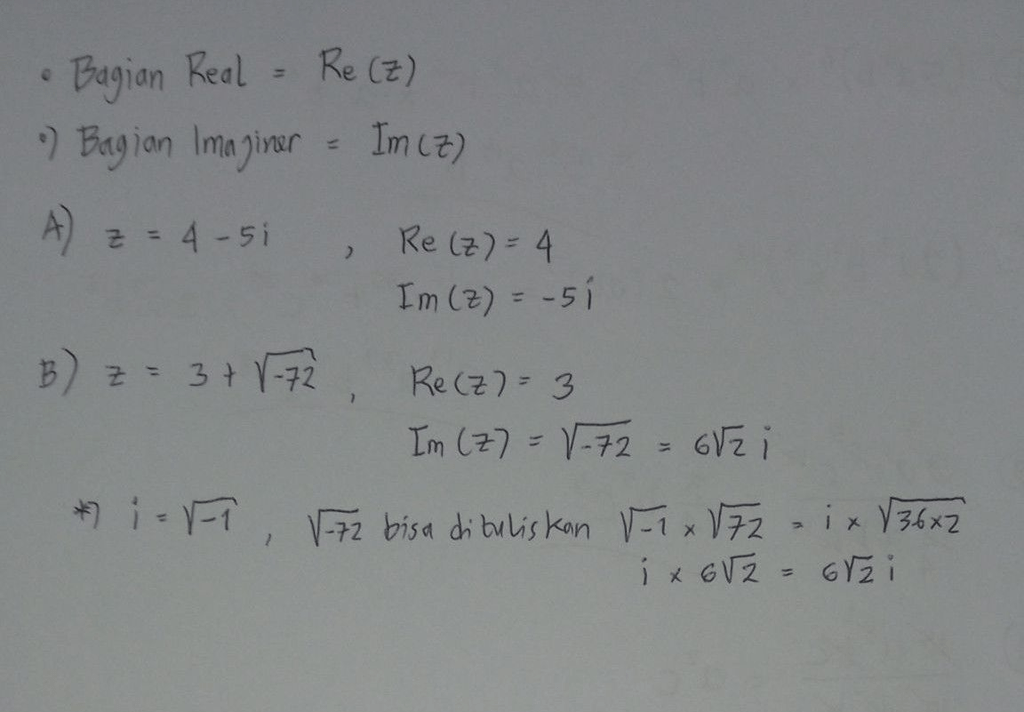 • Bagian Real = Re(z)
•) Bagian Imaginer = Im(z)
A) z = 4 - 5i , Re(z) = 4
Im(z) = -5i
B) z = 3 + √-72 , Re(z) = 3
Im(z) = √-72 = 6√2 i
*) i = √-1 , √-72 bisa dituliskan √-1 × √72 = i × √36×2
i × 6√2 = 6√2 i